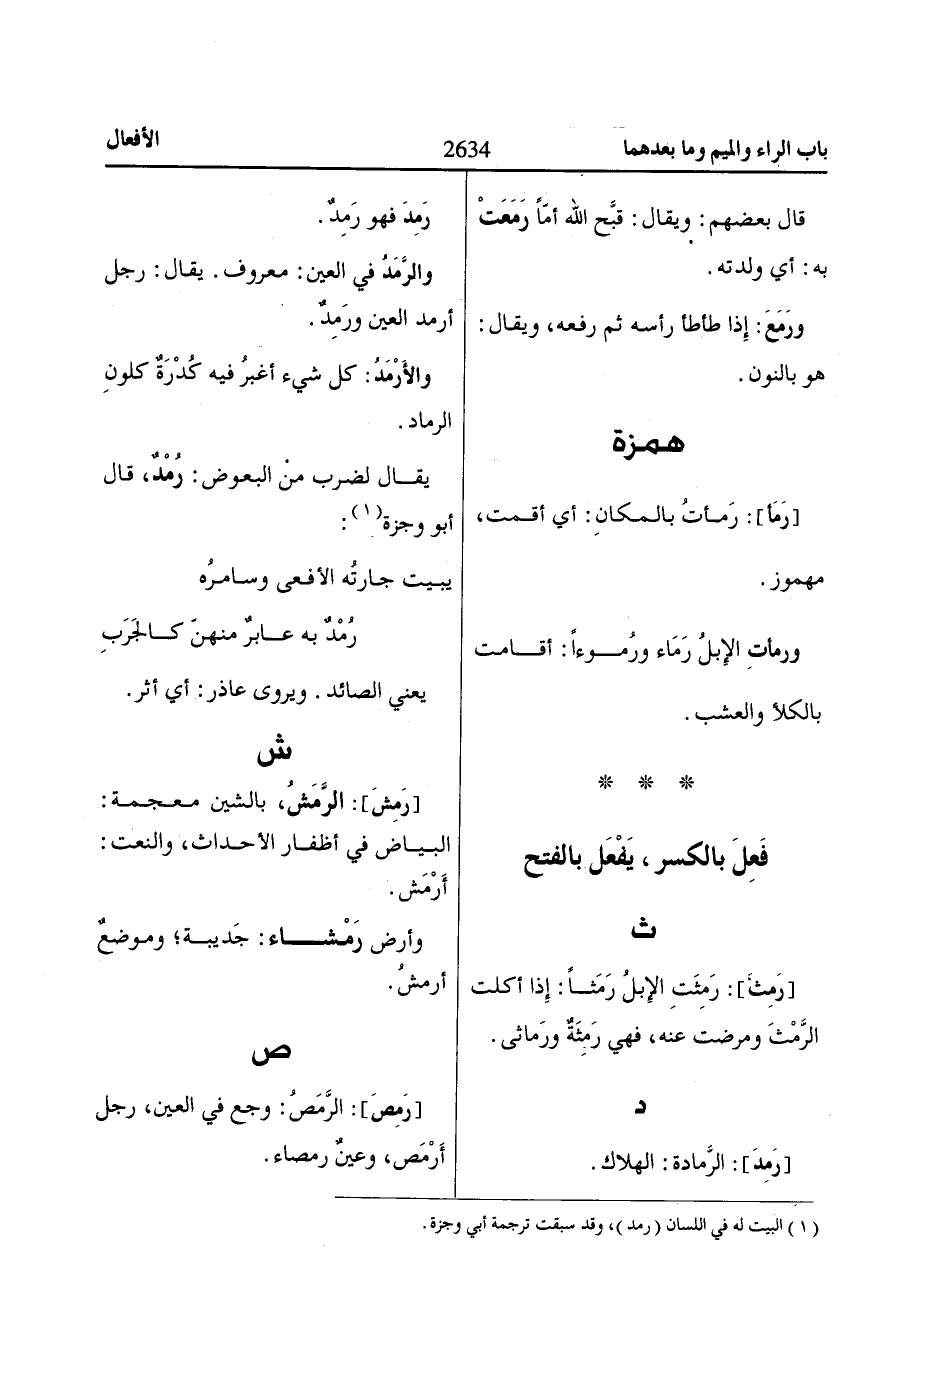 باب الراء والميم وما بعدهما
2634
الأفعال
قال بعضهم: ويقال: قبَّح الله أمّاً رَمَعَتْ
به: أي ولدته.
ورَمَعَ: إذا طأطأ رأسه ثم رفعه، ويقال:
هو بالنون.
همزة
[رَمَأ]: رَمأتُ بالمكانِ: أي أقمت،
مهموز.
ورمأتِ الإبلُ رَمَاء ورُموءاً: أقامت
بالكلأ والعشب.
* * *
فَعِلَ بالكسر، يَفْعَل بالفتح
ث
[رَمِثَ]: رَمِثَتِ الإبلُ رَمَثاً: إذا أكلت
الرَّمْثَ ومرضت عنه، فهي رَمِثَةٌ ورَماثى.
د
[رَمِدَ]: الرَّمادة: الهلاك.
رَمِدَ فهو رَمِدٌ.
والرَّمَدُ في العين: معروف. يقال: رجل
أرمد العين ورَمِدٌ.
والأَرْمَدُ: كل شيء أغبرُ فيه كُدْرَةٌ كلونِ
الرماد.
يقال لضرب من البعوض: رُمْدٌ، قال
أبو وجزة(١):
يبيت جارتُه الأفعى وسامرُه
رُمْدٌ به عابرٌ منهنّ كالجَرَبِ
يعني الصائد. ويروى عاذر: أي أثر.
ش
[رَمِشَ]: الرَّمَشُ، بالشين معجمة:
البياض في أظفار الأحداث، والنعت:
أَرْمَش.
وأرض رَمْشاء: جَديبة؛ وموضعٌ
أرمشُ.
ص
[رَمِصَ]: الرَّمَصُ: وجع في العين، رجل
أَرْمَص، وعينٌ رمصاء.
(١) البيت له في اللسان (رمد)، وقد سبقت ترجمة أبي وجزة.